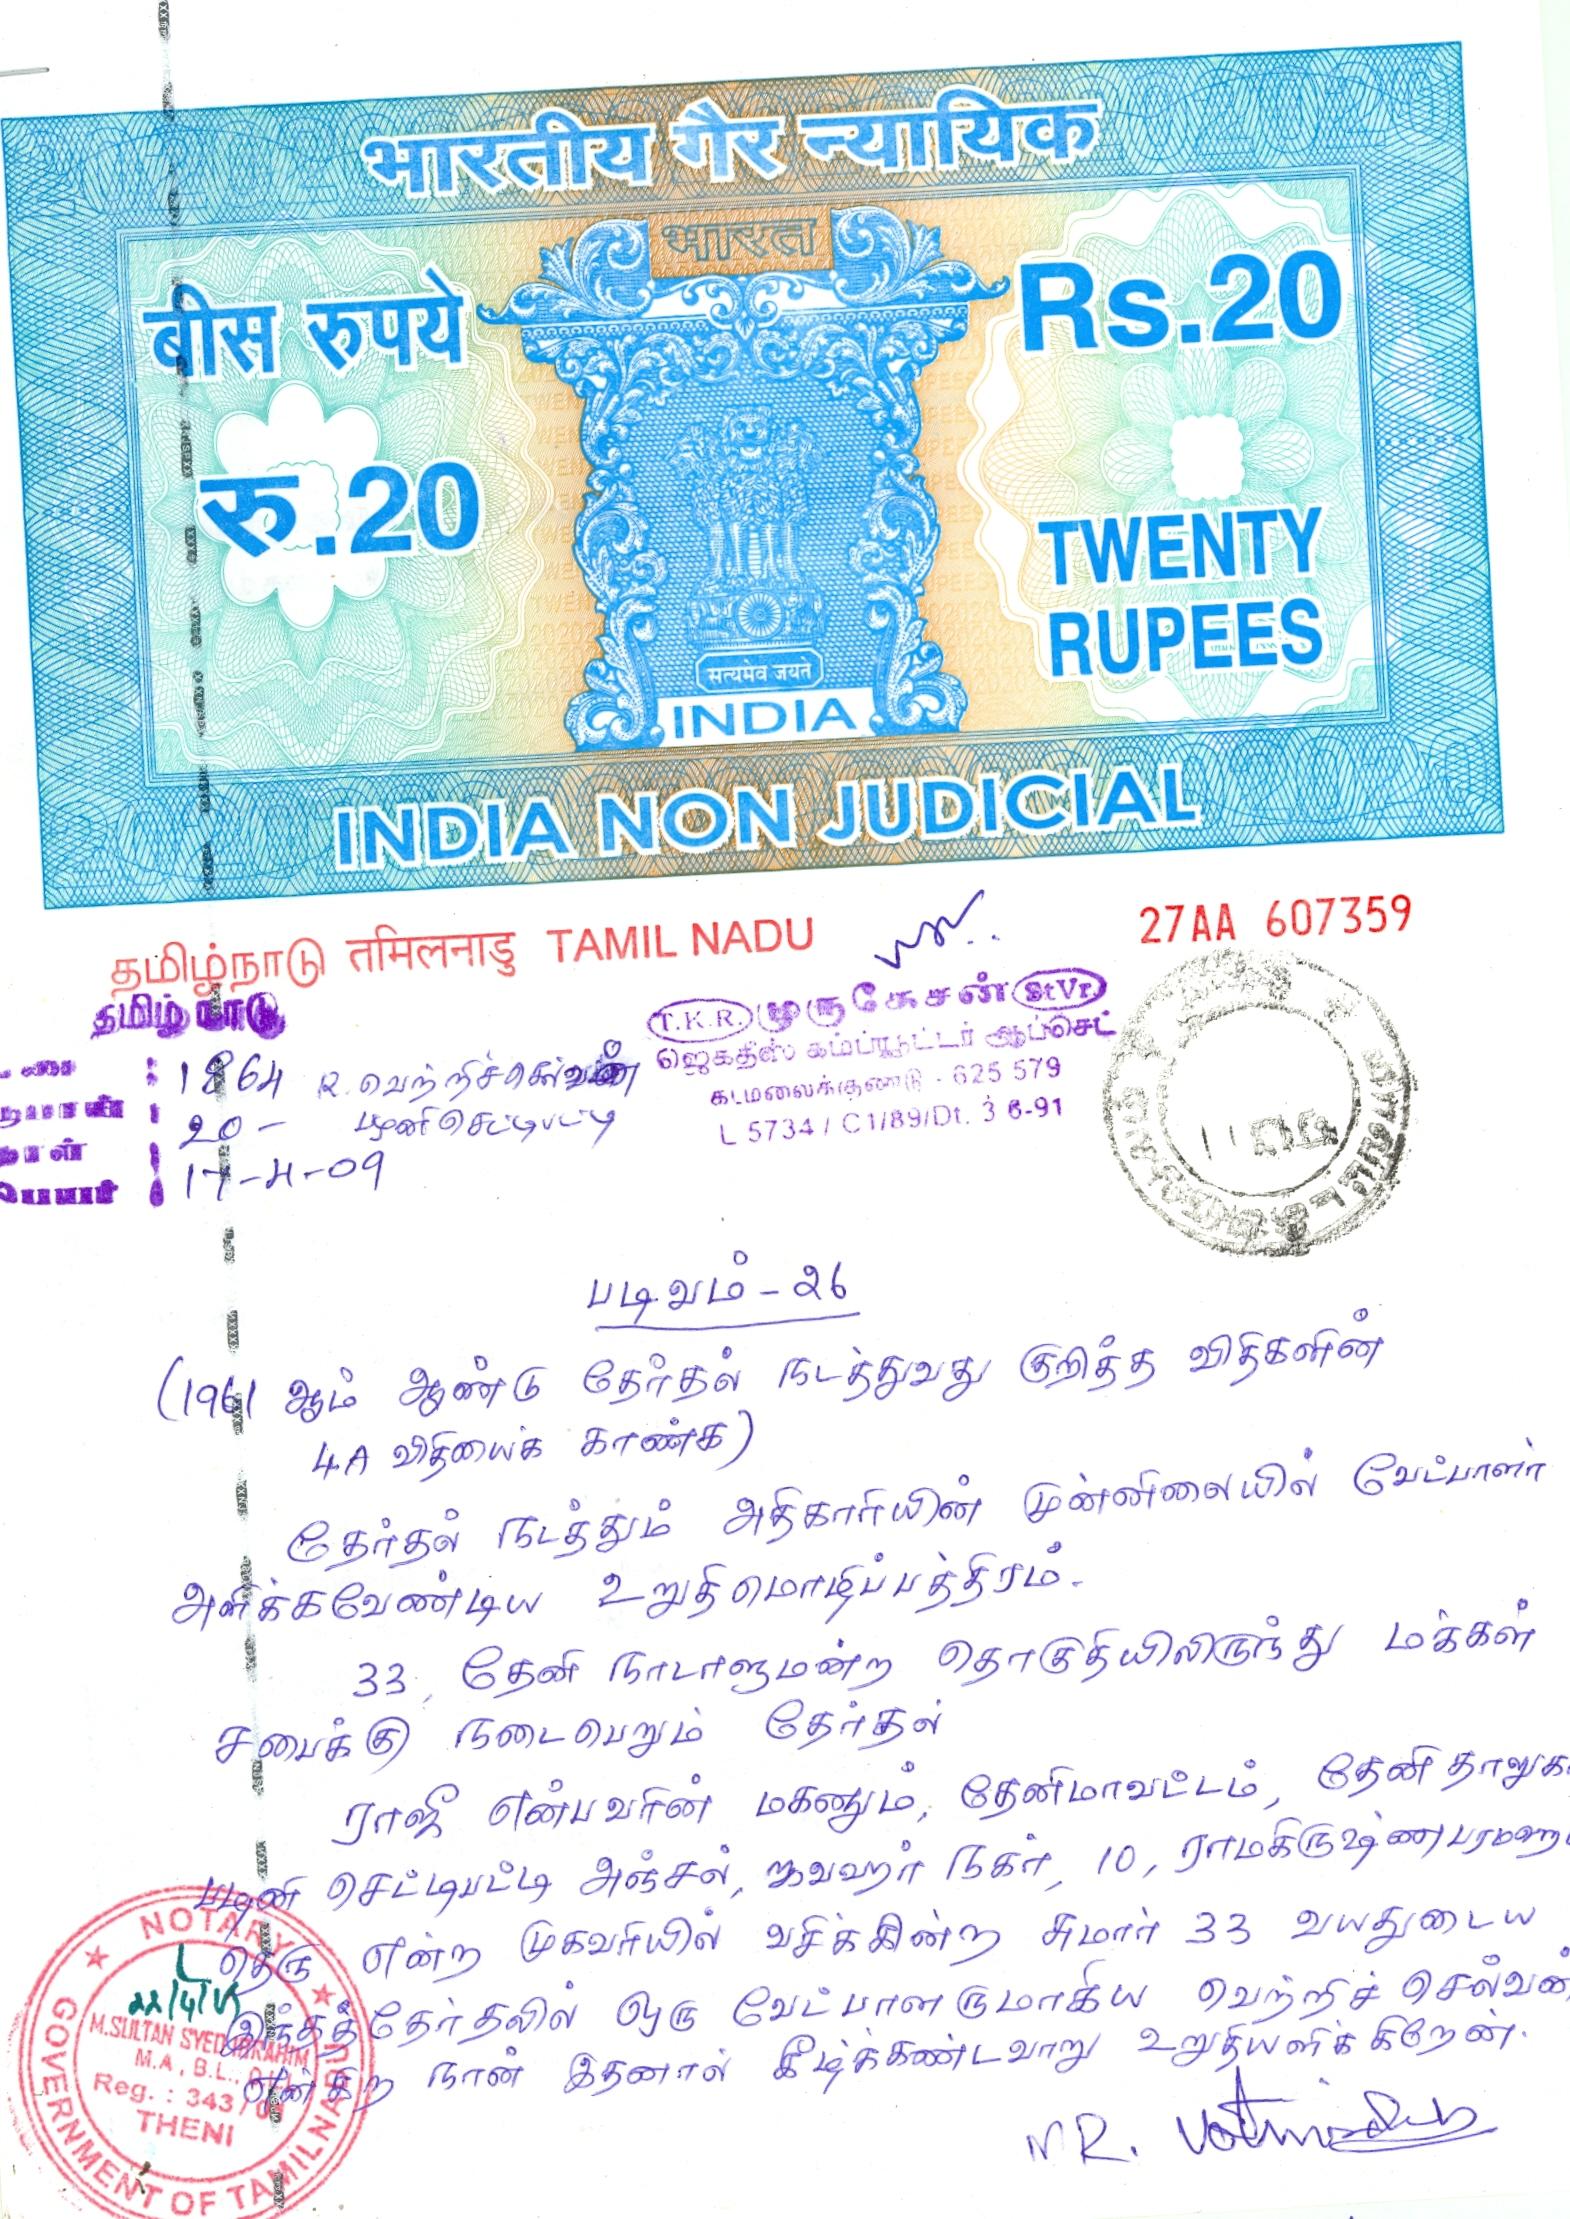 भारतीय गैर न्यायिक
भारत
बीस रुपये
Rs.20
रु.20
TWENTY
RUPEES
सत्यमेव जयते
INDIA
INDIA NON JUDICIAL
தமிழ்நாடு तमिलनाडु TAMIL NADU
27AA 607359
தமிழ் நாடு
T.K.R. முருகேசன் StVr.
ஜெகதீஸ் கம்ப்யூட்டர் ஆப்செட்
கடமலைக்குண்டு - 625 579
L 5734 / C1/89/Dt. 3 6-91
1864 R. வெற்றிச்செல்வன்
20- பழனிசெட்டிபட்டி
17-4-09
படிவம் - 26
(1961 ஆம் ஆண்டு தேர்தல் நடத்துவது குறித்த விதிகளின்
4A விதியைக் காண்க)
தேர்தல் நடத்தும் அதிகாரியின் முன்னிலையில் வேட்பாளர்
அளிக்கவேண்டிய உறுதிமொழிப்பத்திரம்.
33, தேனி நாடாளுமன்ற தொகுதியிலிருந்து மக்கள்
சபைக்கு நடைபெறும் தேர்தல்
ராஜீ என்பவரின் மகனும், தேனிமாவட்டம், தேனி தாலுகா
பழனி செட்டிபட்டி அஞ்சல், ஜவஹர் நகர், 10, ராமகிருஷ்ணபரமஹ
தெரு என்ற முகவரியில் வசிக்கின்ற சுமார் 33 வயதுடைய
இந்தத்தேர்தலில் ஒரு வேட்பாளருமாகிய வெற்றிச் செல்வன்
என்கிற நான் இதனால் கீழ்க்கண்டவாறு உறுதியளிக்கிறேன்.
NOTARY
22/4/09
M.SULTAN SYED IBRAHIM
M.A., B.L.,
Reg. : 343/
THENI
GOVERNMENT OF TAMILNADU